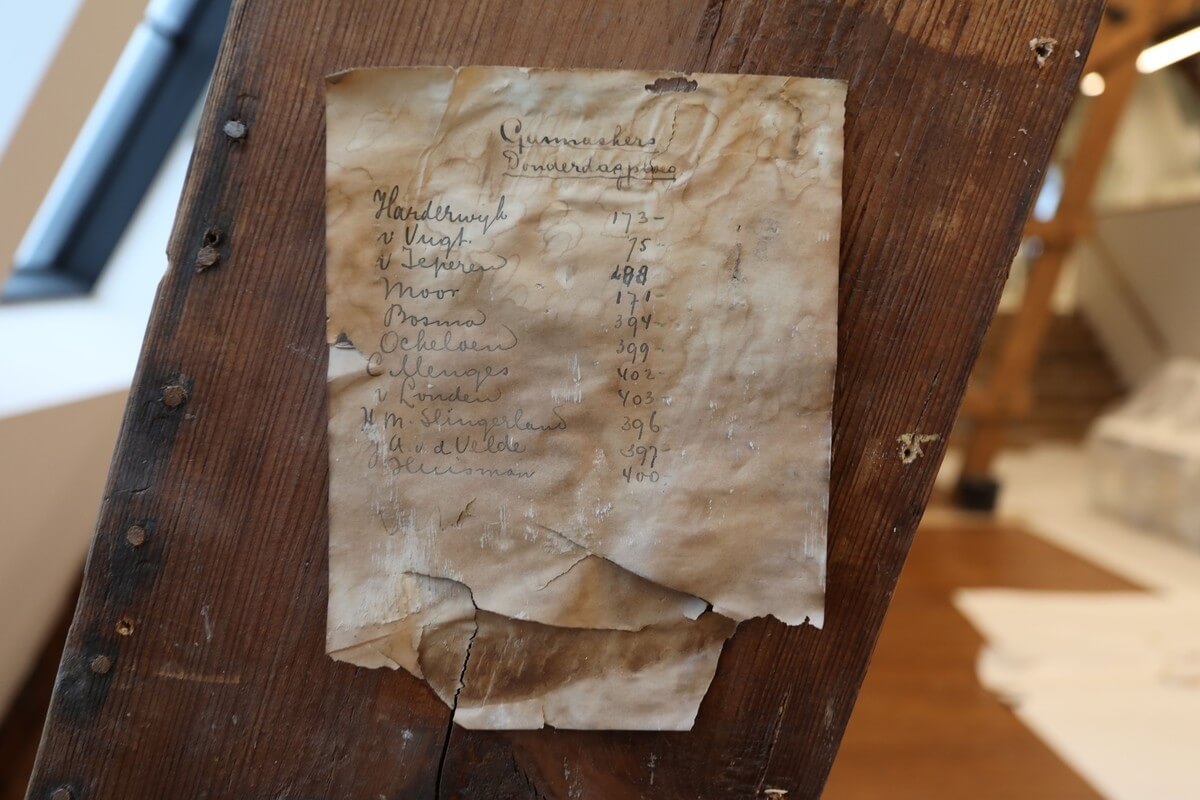 Gasmaskers
Donderdagploeg
Harderwyk 173-
v Vugt. 75-
v Ieperen 188
Moor 171-
Bosma 394-
Ocheloen 399-
C Menges 402-
v Londen 403-
H. M. Slingerland 396
J A. v. d Velde 397-
Huisman 400.